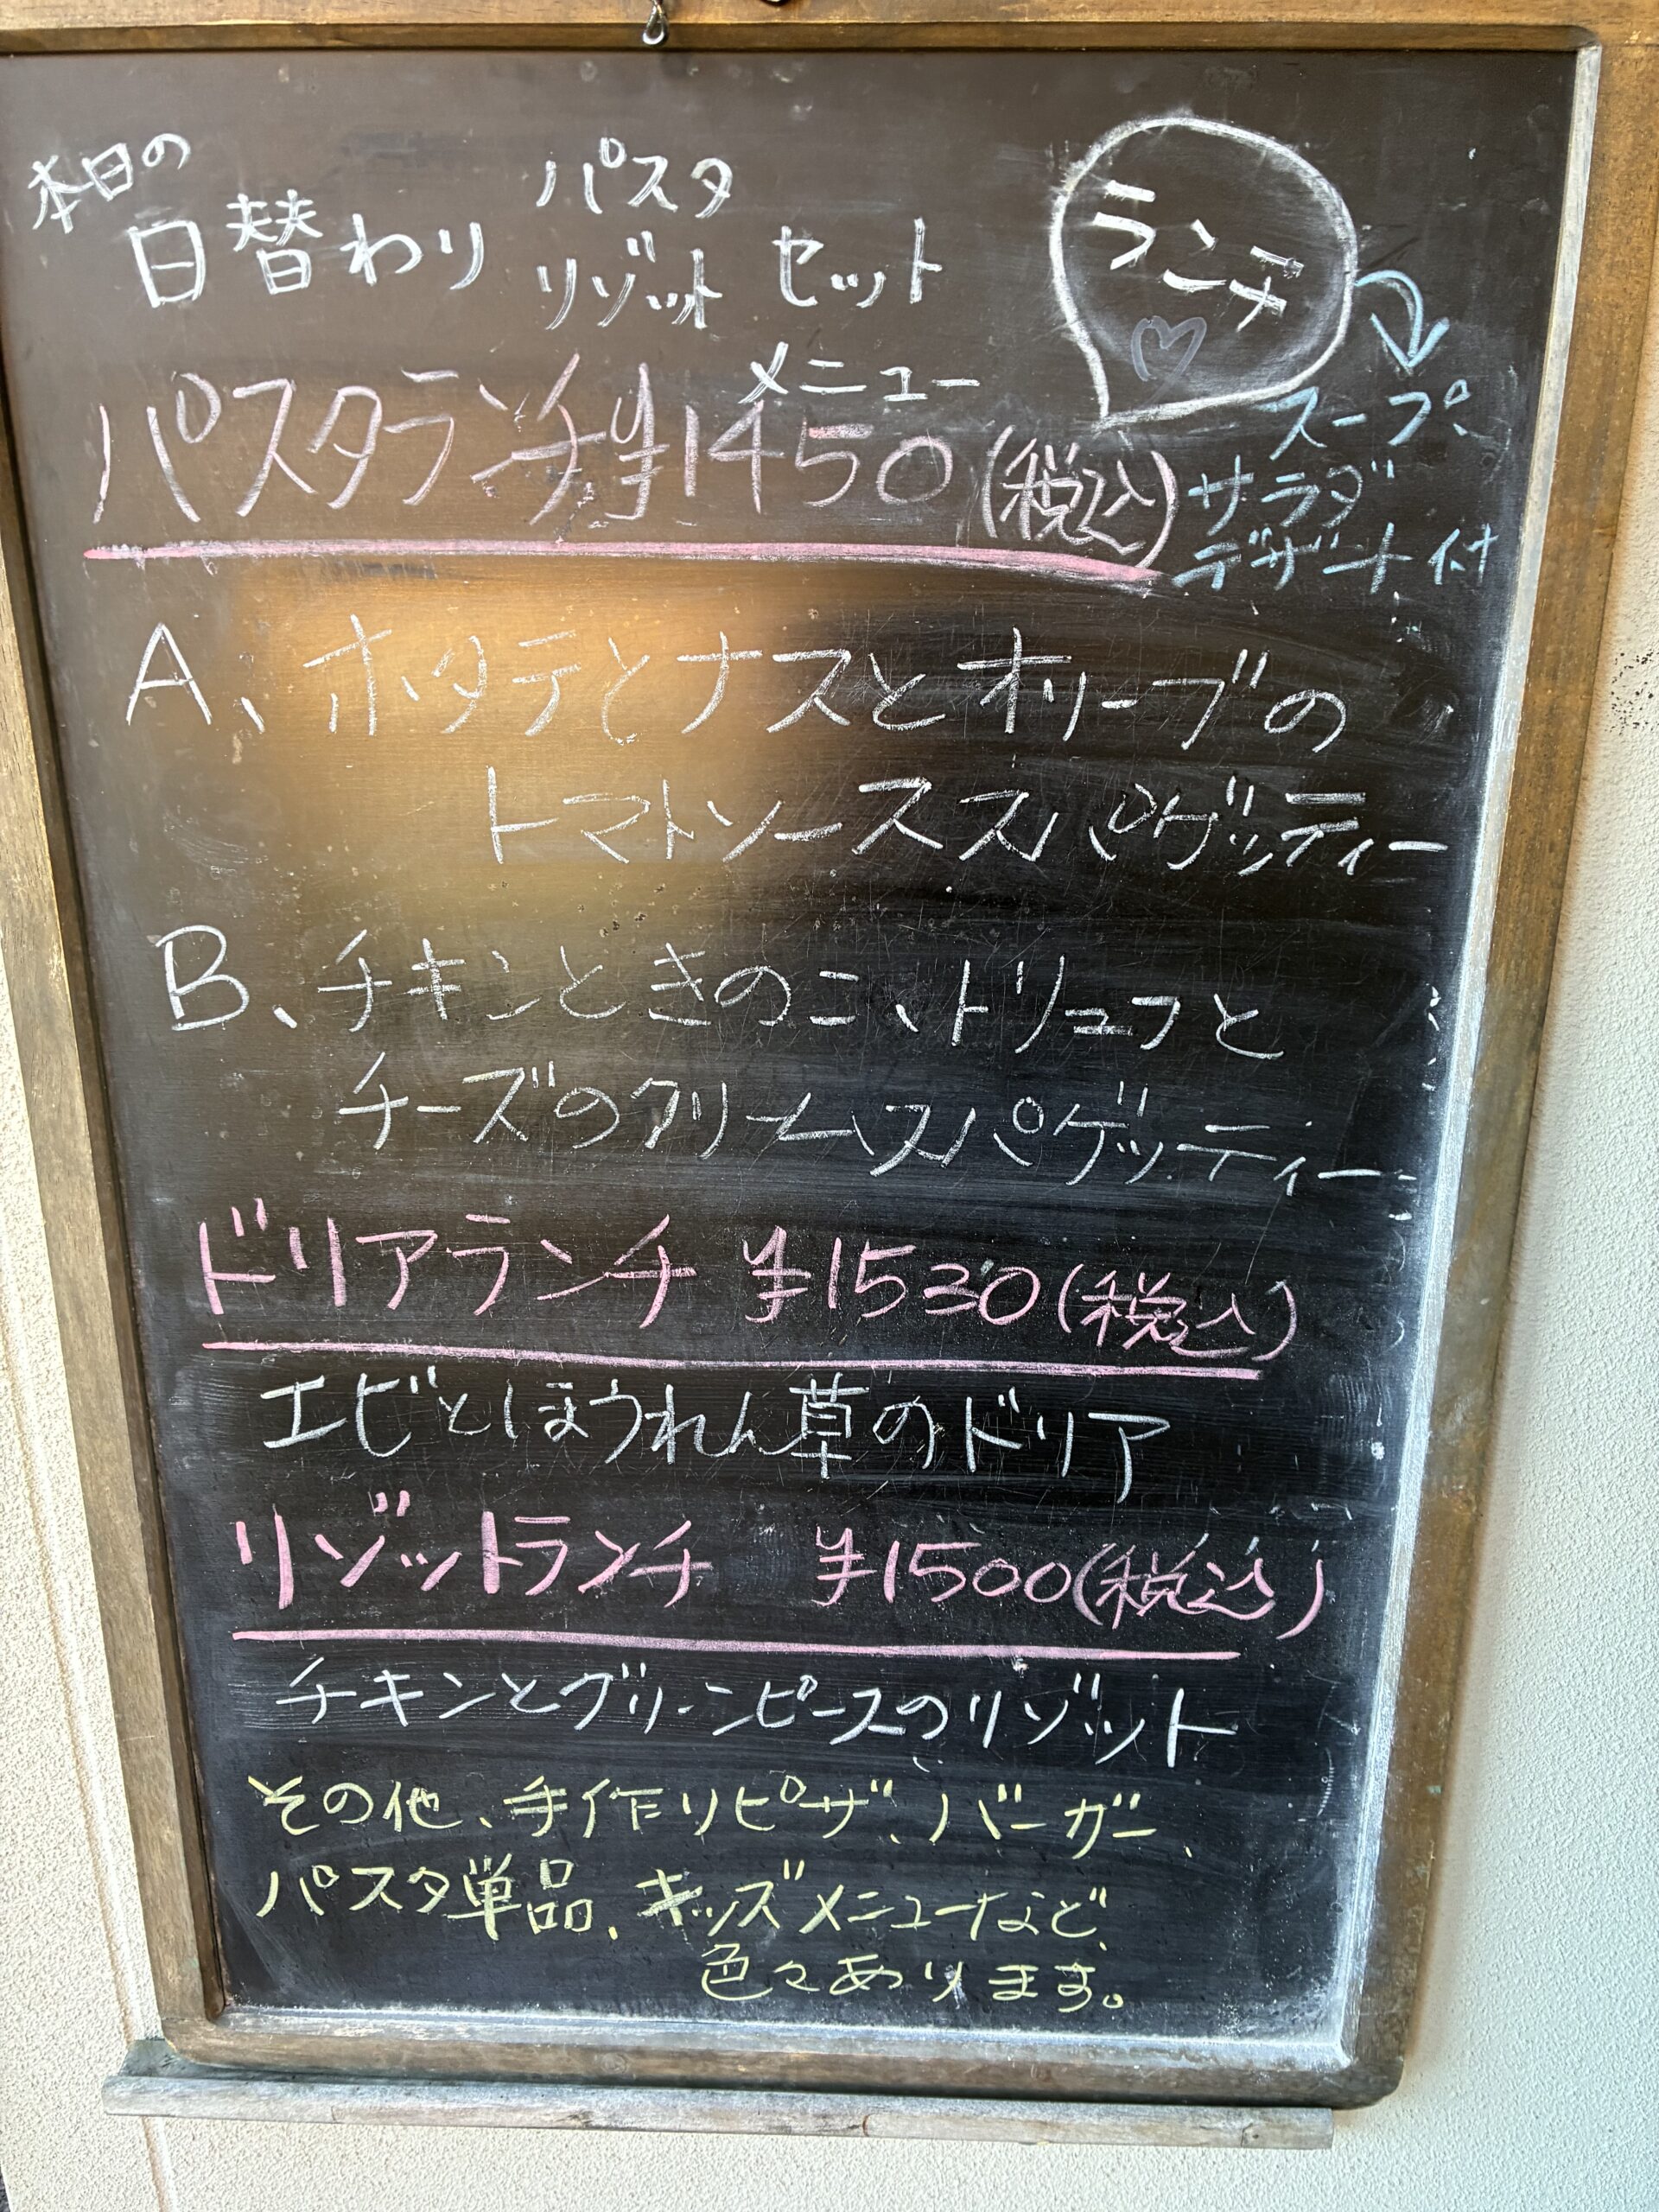 本日の
日替わり パスタ リゾット セット
メニュー
ランチ
スープ、
サラダ
デザート付
パスタランチ¥1450(税込)
A、ホタテとナスとオリーブの
トマトソーススパゲッティー
B、チキンときのこ、トリュフと
チーズのクリームスパゲッティー
ドリアランチ ¥1530(税込)
エビとほうれん草のドリア
リゾットランチ ¥1500(税込)
チキンとグリーンピースのリゾット
その他、手作りピザ、バーガー、
パスタ単品、キッズメニューなど、
色々あります。